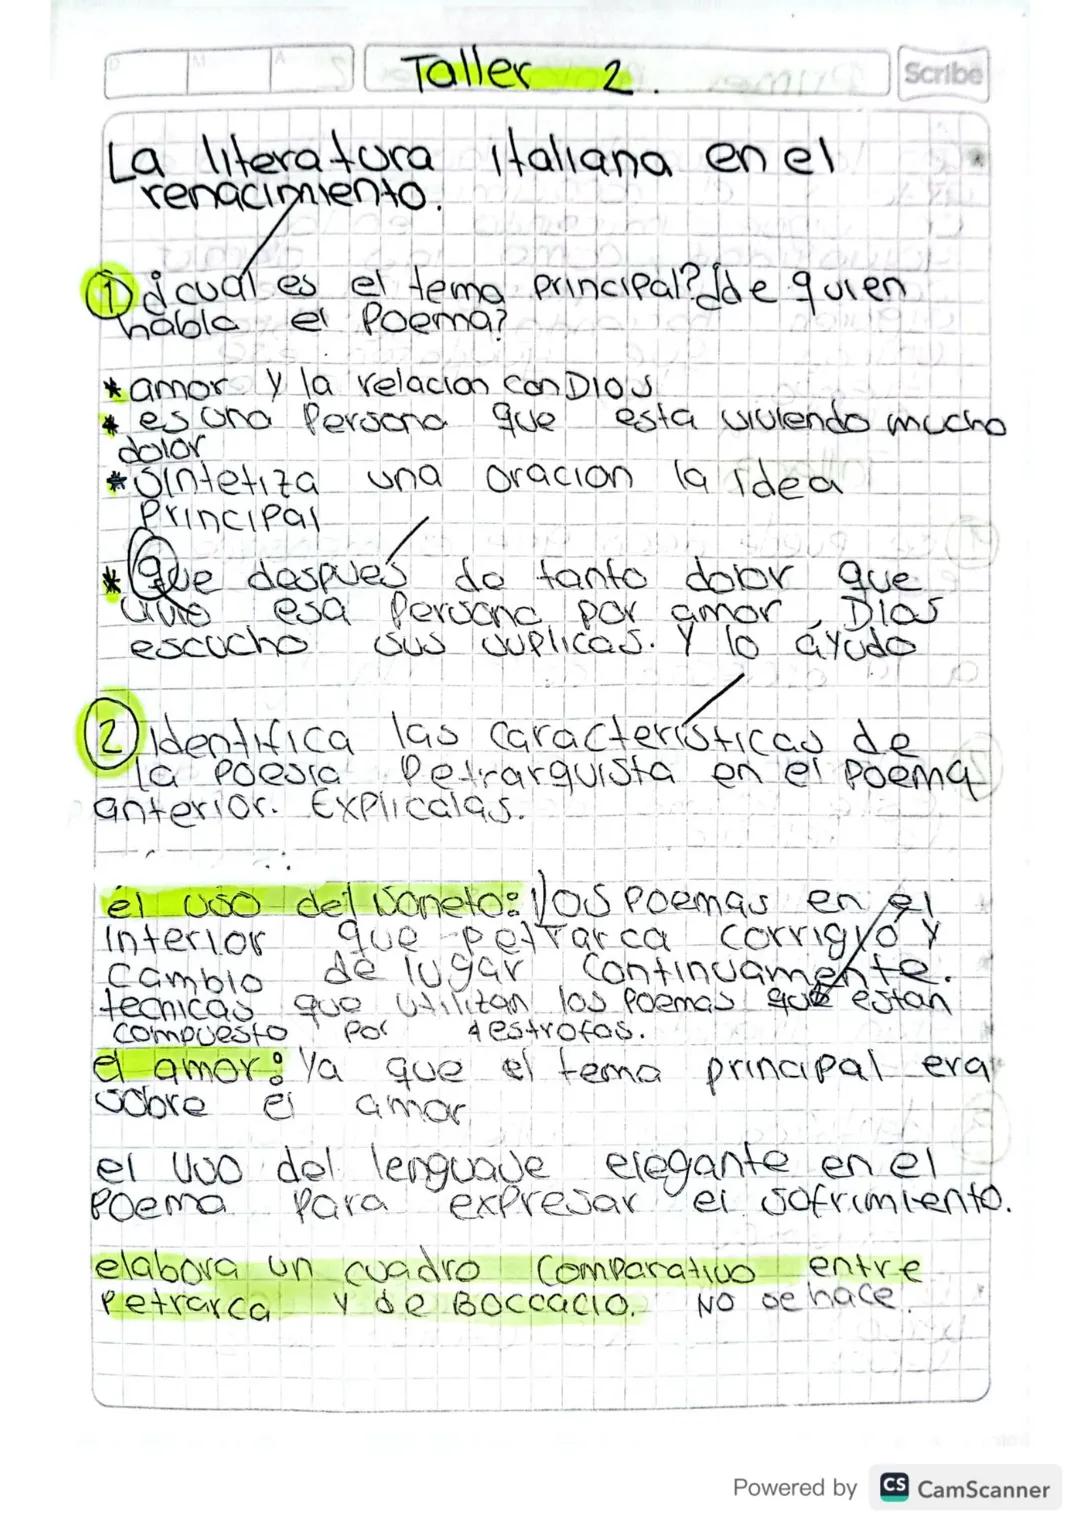 D M A
Taller 2.
Scribe
La literatura italiana en el
renacimiento.
① ¿cual es el tema principal? ¿de quien
habla el Poema?
* amor y la relacion con Dios
* es una Persona que esta viviendo mucho
dolor
* Sintetiza una oracion la idea
Principal
* Que despues de tanto dolor que
vivio esa Persona por amor, Dios
escucho sus suplicas. Y lo áyudo
② Identifica las características de
la Poesia Petrarquista en el Poema
anterior. Explicalas.
él uso del soneto: los Poemas en el
Interior que petrarca corrigio y
Cambio de lugar continuamente.
tecnicas que utilizan los Poemas que estan
compuesto Por 4 estrofas.
el amor: Ya que el tema principal era
sobre el amor
el uso del lenguaje elegante en el
Poema Para expresar el sofrimiento.
elabora un cuadro comparativo entre
Petrarca y de Boccacio. No se hace.
Powered by CS CamScanner